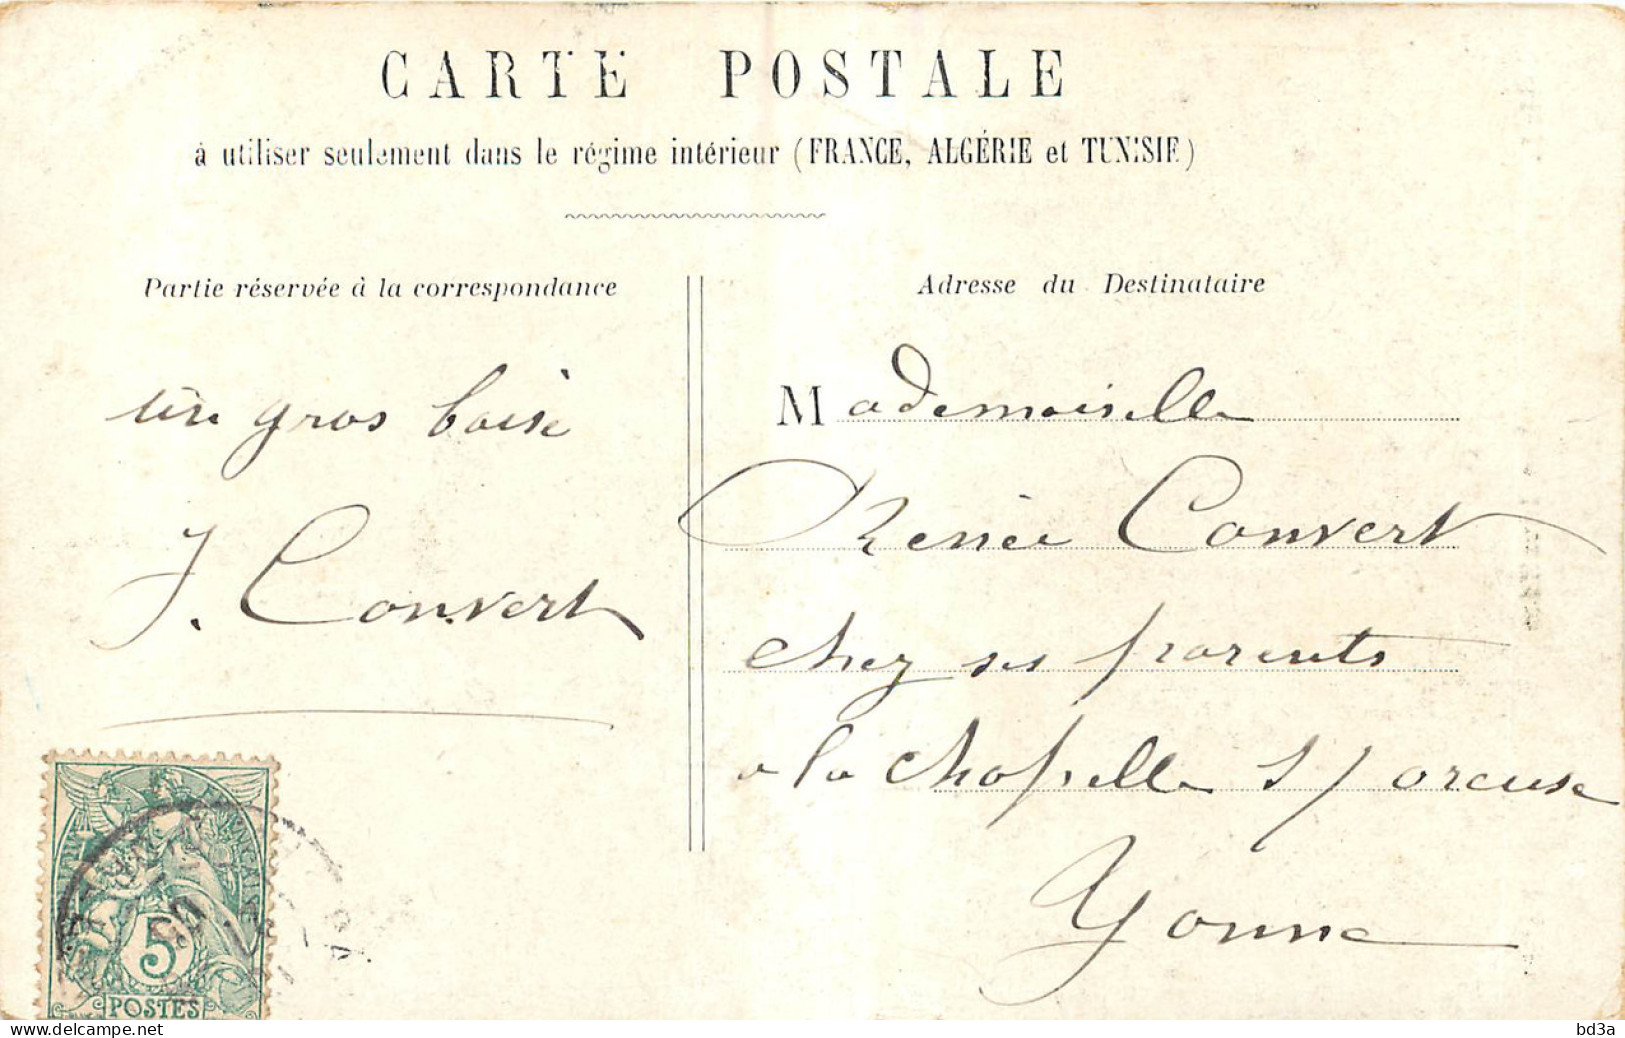 CARTE POSTALE
à utiliser seulement dans le régime intérieur (FRANCE, ALGÉRIE et TUNISIE)
Partie réservée à la correspondance
un gros baise
J. Convert
Adresse du Destinataire
Mademoiselle
Renée Convert
chez ses parents
a la Chapelle s/ oreuse
Yonne
5
POSTES
delcampe.net
bd3a